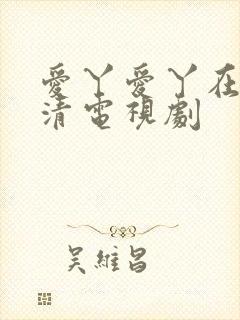 愛丫愛丫在
清電視劇
吳維昌